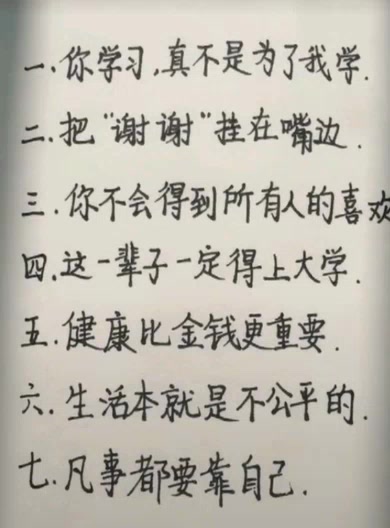 一.你学习,真不是为了我学.
二.把“谢谢”挂在嘴边.
三.你不会得到所有人的喜欢
四.这一辈子一定得上大学.
五.健康比金钱更重要.
六.生活本就是不公平的.
七.凡事都要靠自己.